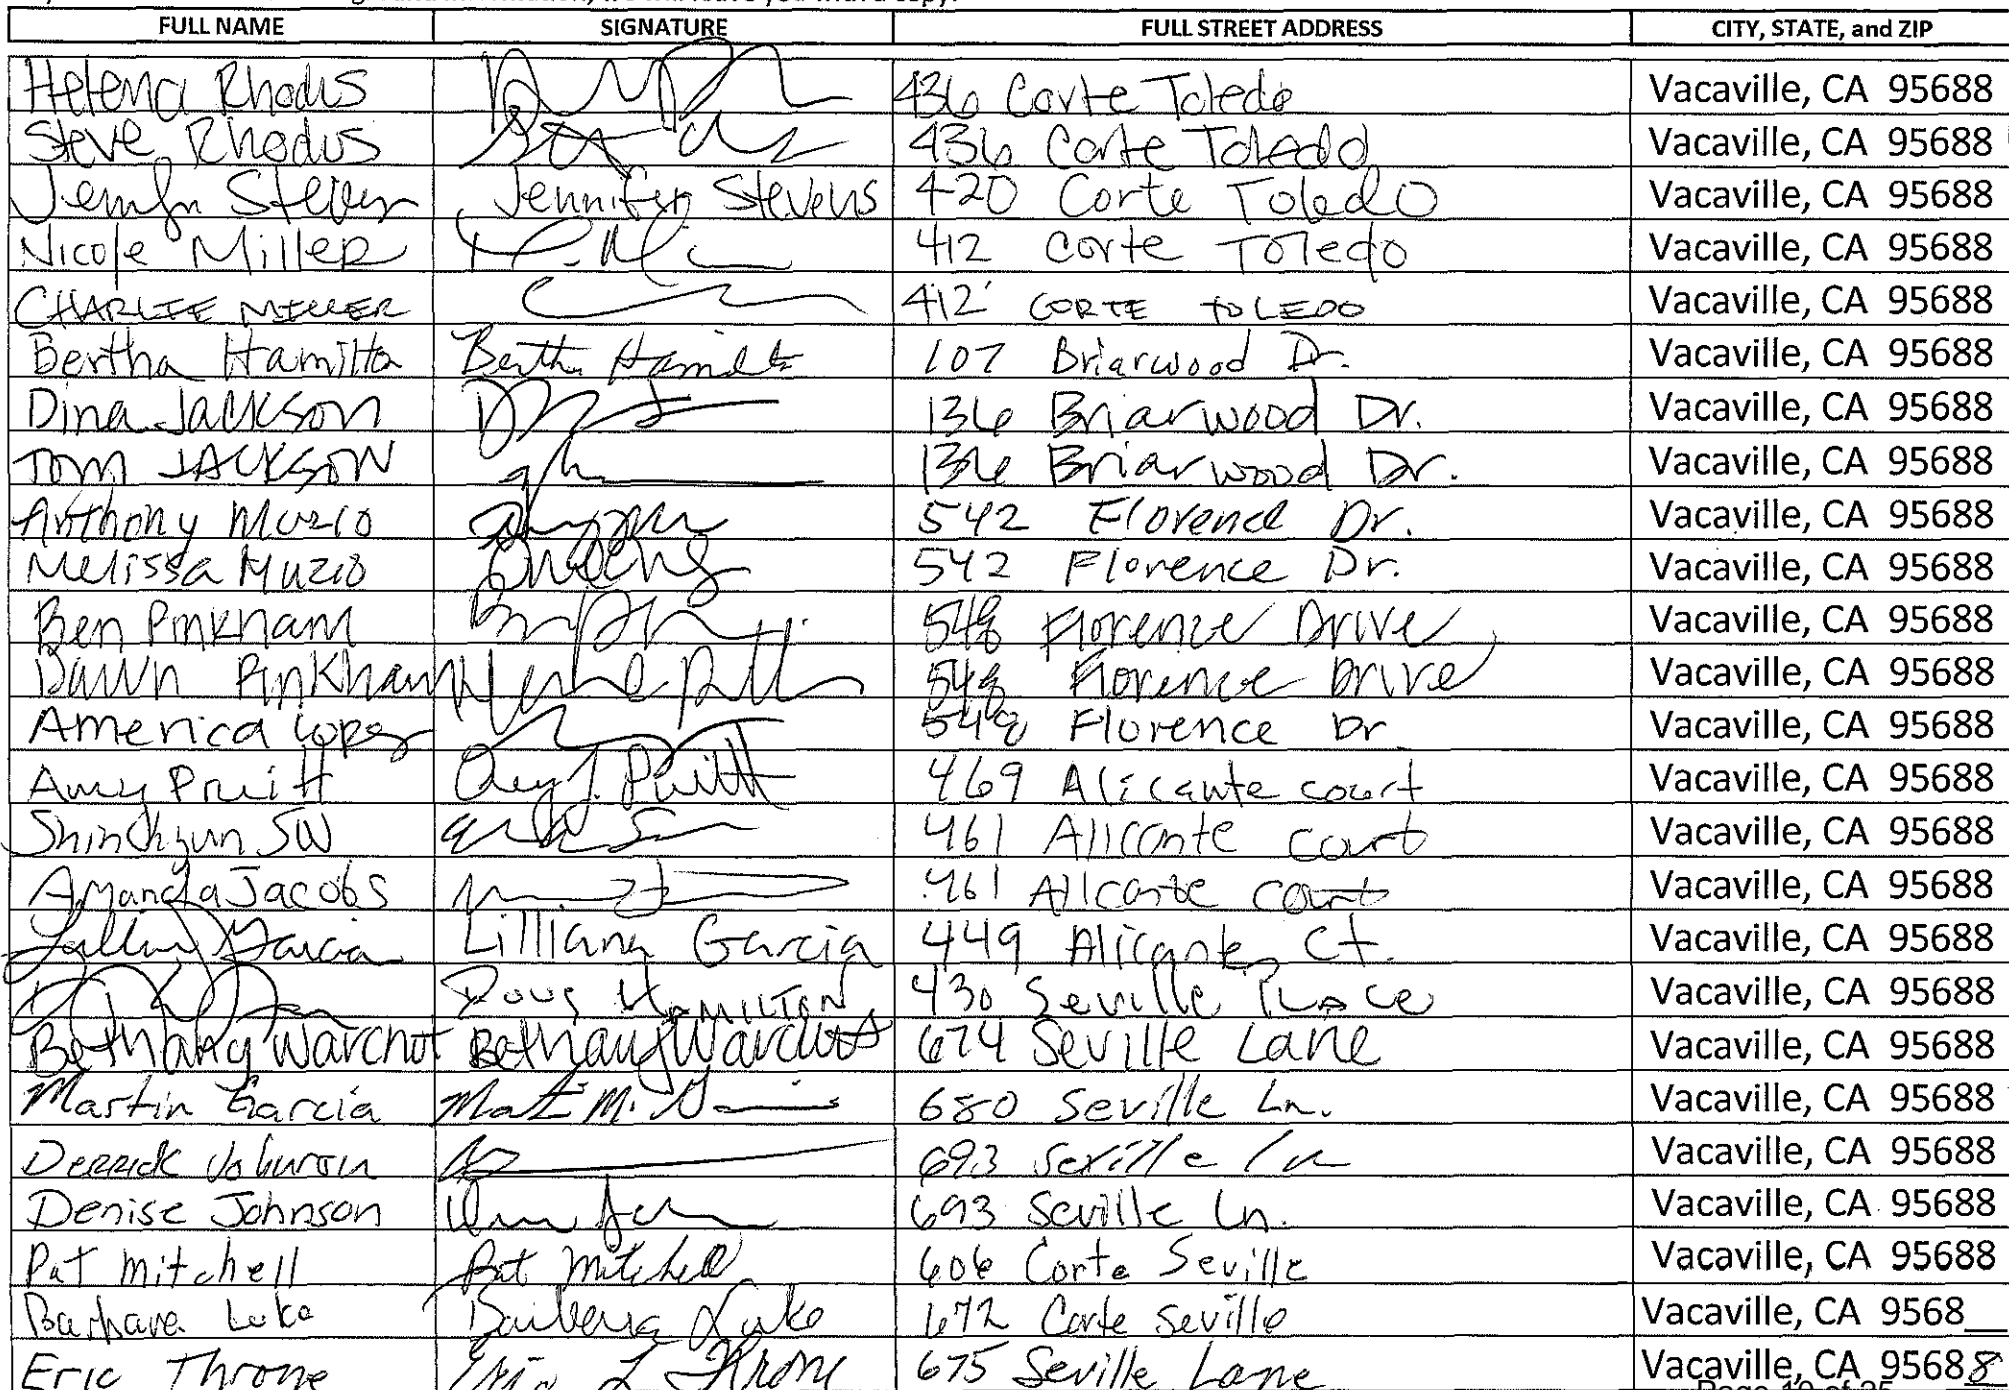 FULL NAME SIGNATURE FULL STREET ADDRESS CITY, STATE, and ZIP
Helena Rhodus 436 Corte Toledo Vacaville, CA 95688
Steve Rhodus 436 Corte Toledo Vacaville, CA 95688
Jennifer Stevens 420 Corte Toledo Vacaville, CA 95688
Nicole Miller 412 Corte Toledo Vacaville, CA 95688
CHARLIE MILLER 412 CORTE TOLEDO Vacaville, CA 95688
Bertha Hamilton Bertha Hamilton 107 Briarwood Dr. Vacaville, CA 95688
Dina Jackson 136 Briarwood Dr. Vacaville, CA 95688
TOM JACKSON 136 Briarwood Dr. Vacaville, CA 95688
Anthony Muzio 542 Florence Dr. Vacaville, CA 95688
Melissa Muzio 542 Florence Dr. Vacaville, CA 95688
Ben Pinkham 548 Florence Drive Vacaville, CA 95688
Dawn Pinkham 548 Florence Drive Vacaville, CA 95688
America Lopez 548 Florence Dr. Vacaville, CA 95688
Amy Pruitt Amy J. Pruitt 469 Alicante court Vacaville, CA 95688
461 Alicante court Vacaville, CA 95688
Amanda Jacobs 461 Alicante court Vacaville, CA 95688
Garcia Lilliana Garcia 449 Alicante Ct. Vacaville, CA 95688
Doug HAMILTON 430 Seville Place Vacaville, CA 95688
Bethany Warchot Bethany 674 Seville Lane Vacaville, CA 95688
Martin Garcia 680 Seville Ln. Vacaville, CA 95688
Derrick Johnson 693 Seville Ln Vacaville, CA 95688
Denise Johnson 693 Seville Ln. Vacaville, CA 95688
Pat Mitchell Pat Mitchell 606 Corte Seville Vacaville, CA 95688
Barbara Luke Barbara Luke 672 Corte Seville Vacaville, CA 9568_
Eric Throne 675 Seville Lane Vacaville, CA 95688